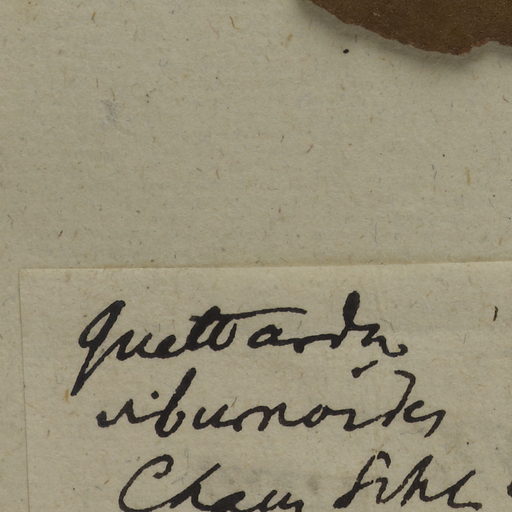 Guettarda
viburnoides
Cham Schl